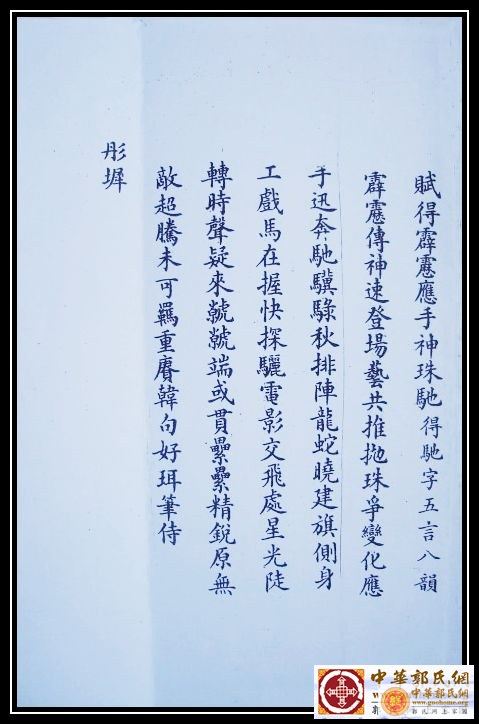 賦得霹靂應手神珠馳得馳字五言八韻
霹靂傳神速登場藝共推拋珠爭變化應
手迅奔馳驥騄秋排陣龍蛇曉建旗側身
工戲馬在握快探驪電影交飛處星光陡
轉時聲疑來虩虩端或貫纍纍精銳原無
敵超騰未可羈重賡韓句好珥筆侍
彤墀
中華郭氏網
www.guohome.org
郭氏网上家園